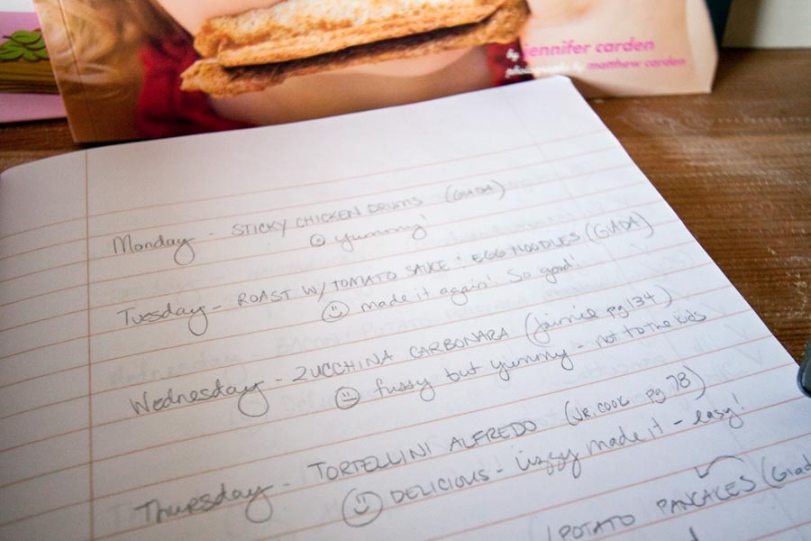 by jennifer carden
photographs by matthew carden
Monday - STICKY CHICKEN DRUMS (GIADA)
yummy!
Tuesday - ROAST W/TOMATO SAUCE & EGG NOODLES (GIADA)
made it again! So good!
Wednesday - ZUCCHINA CARBONARA (jaimie pg 134)
fussy but yummy - not to the kids
Thursday - TORTELLINI ALFREDO (JR. COOK pg. 78)
DELICIOUS - made it - easy!
POTATO PANCAKES (Giada